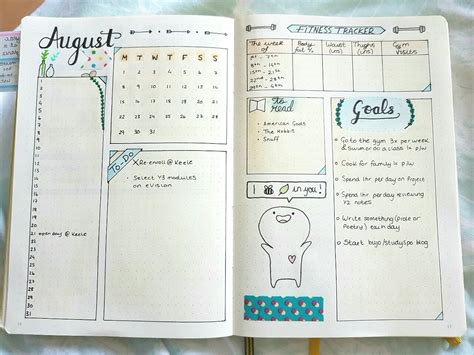 August
M T W T F S S
1 2 3 4 5 6 7
8 9 10 11 12 13 14
15 16 17 18 19 20 21
22 23 24 25 26 27 28
29 30 31
1
2
3
4
5
6
7
8
9
10
11
12
13
14
15
16
17
18
19
20
21 open day @ Keele
22
23
24
25
26
27
28
29
30
31
TO-DO
X Re-enroll @ Keele
• Select Y3 modules
on eVision
FITNESS TRACKER
The week of Body fat % Waist (ins) Thighs (ins) Gym visits
1st - 7th
8th - 14th
15th - 21st
22nd - 28th
29th - 4th
to read
• American Gods
• The Hobbit
• Snuff
I in you!
Goals
Go to the gym 3x per week
& swim or do a class 1x p/w
Cook for family 1x p/w
Spend 1hr per day on Project
Spend 1hr per day reviewing
Y2 notes
Write something (prose or
Poetry) each day
Start bujo/studyspo blog